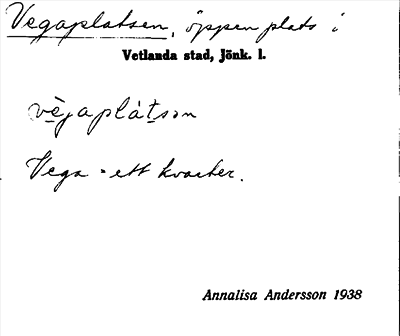 Vegaplatsen, öppen plats i
Vetlanda stad, Jönk. l.
vègaplátsən
Vega = ett kvarter.
Annalisa Andersson 1938